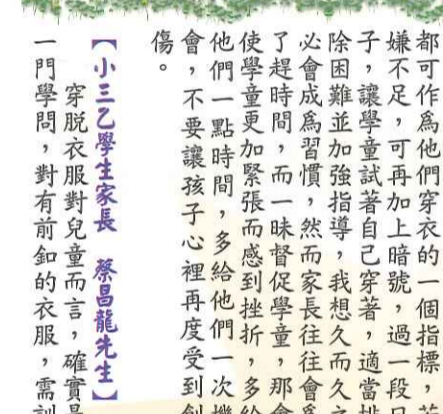 都可作爲他們穿衣的一個指標，
嫌不足，可再加上暗號，過一段日
子，讓學童試著自己穿著，適當排
除困難並加強指導，我想久而久之
必會成爲習慣，然而家長往往會爲
了趕時間，而一昧督促學童，那會
使學童更加緊張而感到挫折，多給
他們一點時間，多給他們一次機
會，不要讓孩子心裡再度受到創
傷。
【小三乙學生家長　蔡昌龍先生】
穿脫衣服對兒童而言，確實是
一門學問，對有前釦的衣服，需訓